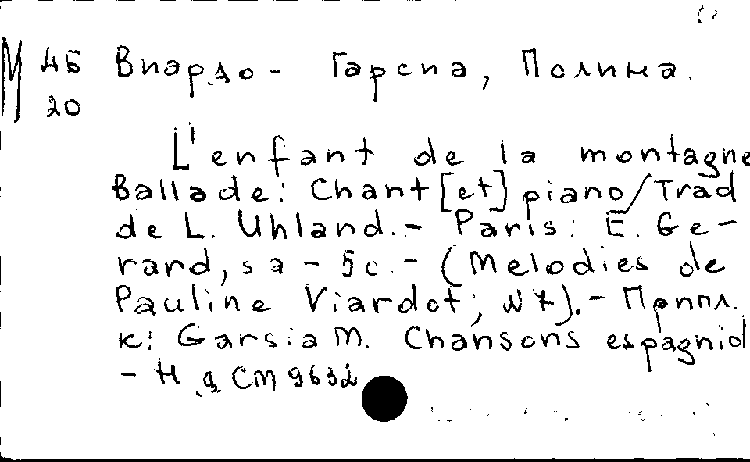 М 45 Виардо - Гарсиа, Полина.
20
L'enfant de la montagne
Ballade: Chant [et] piano/Trad
de L. Uhland. - Paris: E. Ge-
rard, s a - 5 c. - (Melodies de
Pauline Viardot; №7). - Припл.
к: Garsia M. Chansons espagnol
- Н д СМ 9632